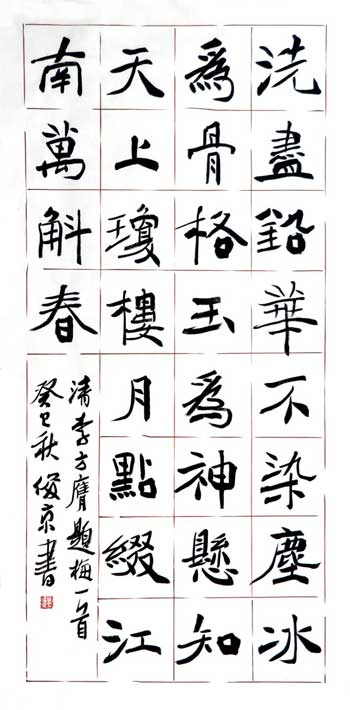 洗盡鉛華不染塵冰
爲骨格玉爲神懸知
天上瓊樓月點綴江
南萬斛春
清李方膺題梅一首
癸巳秋俊京書